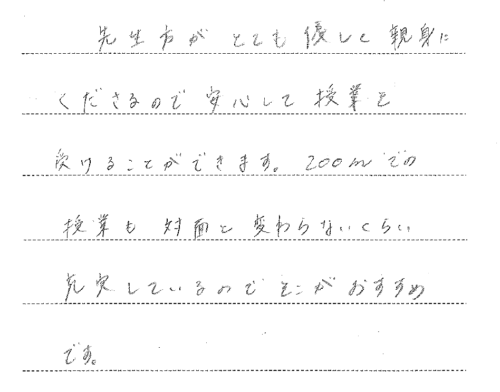 先生方がとても優しく親身に
くださるので安心して授業を
受けることができます。200mでの
授業も対面と変わらないくらい
充実しているのでそこがおすすめ
です。